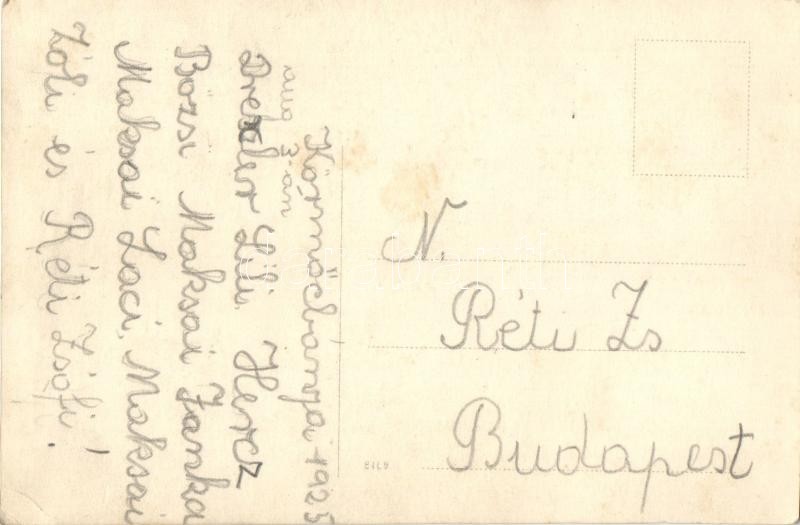 Körmöcbánya 1925
aug 3-án
Drexler Lili, Hercz
Bözsi Maksai Janka
Maksai Laci, Maksai
Zóli és Réti Zsófi!
N.
Réti Zs
Budapest